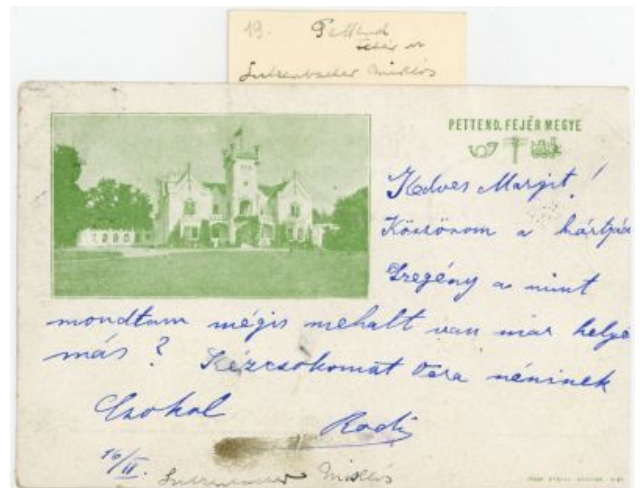 19. Pettend
Fehér m
Lutzenbacher Miklós
PETTEND. FEJÉR MEGYE
Kedves Margit!
Köszönöm a kártyát
Szegény a mint
mondtam mégis mehalt van már helye
más? Kézcsókomat Vera néninek
Csokol Radi
16/II.
Lutzenbacher Miklós